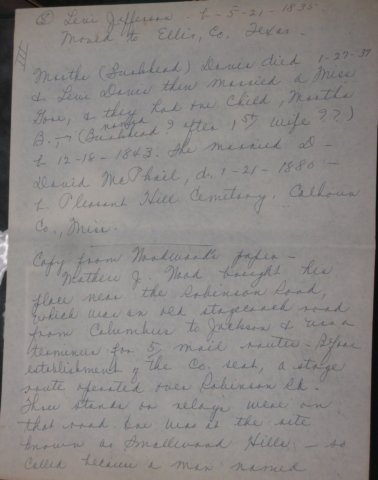 ⑧ Levi Jefferson - b - 5-21-1835-
Moved to Ellis, Co. Texas.
III
Martha (Bushhead) Davis died 1-27-37
& Levi Davis then married a Miss
Gore, & they had one child, Martha
B., → (Bushhead ? named after 1st wife ??)
b 12-18-1843. She married D-
David McPhail, d. 1-21-1880 -
b Pleasant Hill Cemetery. Calhoun
Co., Miss.
Copy from Woodwood's paper -
Mathew J. Wood bought his
place near the Robinson Road,
which was an old stagecoach road
from Columbus to Jackson & was a
terminus for 5, mail routes - Before
establishment of the Co. seat, a stage
route operated over Robinson Rd.
Three stands or relays were on
that road. One was at the site
known as Smallwood Hills - so
called because a man named